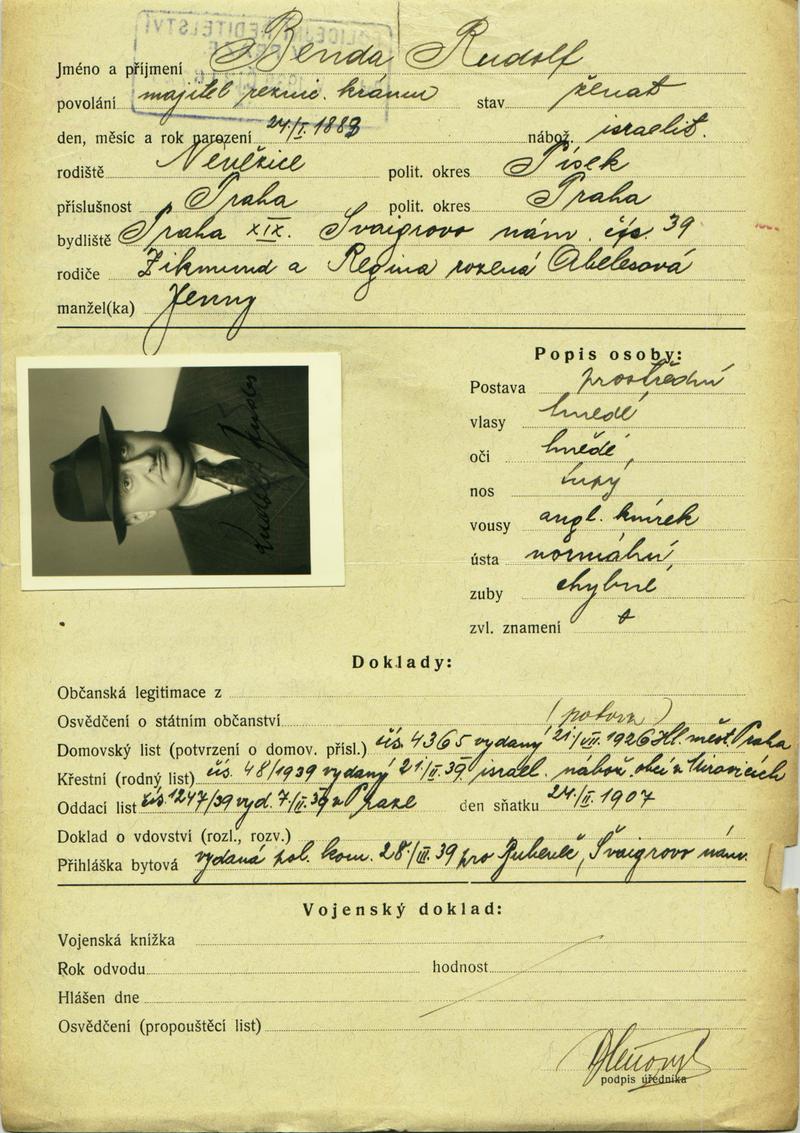 POLICEJNÍ ŘEDITELSTVÍ
V PRAZE
Jméno a příjmení Benda Rudolf
povolání majitel řeznic. krámu stav ženat
den, měsíc a rok narození 24/I. 1883 nábož. israelit.
rodiště Nevězice polit. okres Písek
příslušnost Praha polit. okres Praha
bydliště Praha XIX. Švaigrovo nám. čís. 39
rodiče Zikmund a Regina rozená Abelesová
manžel(ka) Jenny
Popis osoby:
Postava prostřední
vlasy hnědé
oči hnědé
nos tupý
vousy angl. knírek
ústa normální
zuby chybné
zvl. znamení
Doklady:
Občanská legitimace z
Osvědčení o státním občanství
Domovský list (potvrzení o domov. přísl.) čís. 4365 vydaný 21/VII. 1926 Hl. měst. Praha
Křestní (rodný list) čís. 48/1939 vydaný 21/II. 39 israel. nábož. obcí v Mirovicích
Oddací list čís. 1247/39 vyd. 7/II. 39 v Praze den sňatku 24/II. 1907
Doklad o vdovství (rozl., rozv.)
Přihláška bytová vydaná pol. kom. 28/III. 39 pro Bubeneč, Švaigrovo nám.
Vojenský doklad:
Vojenská knížka
Rok odvodu hodnost
Hlášen dne
Osvědčení (propouštěcí list)
podpis úředníka